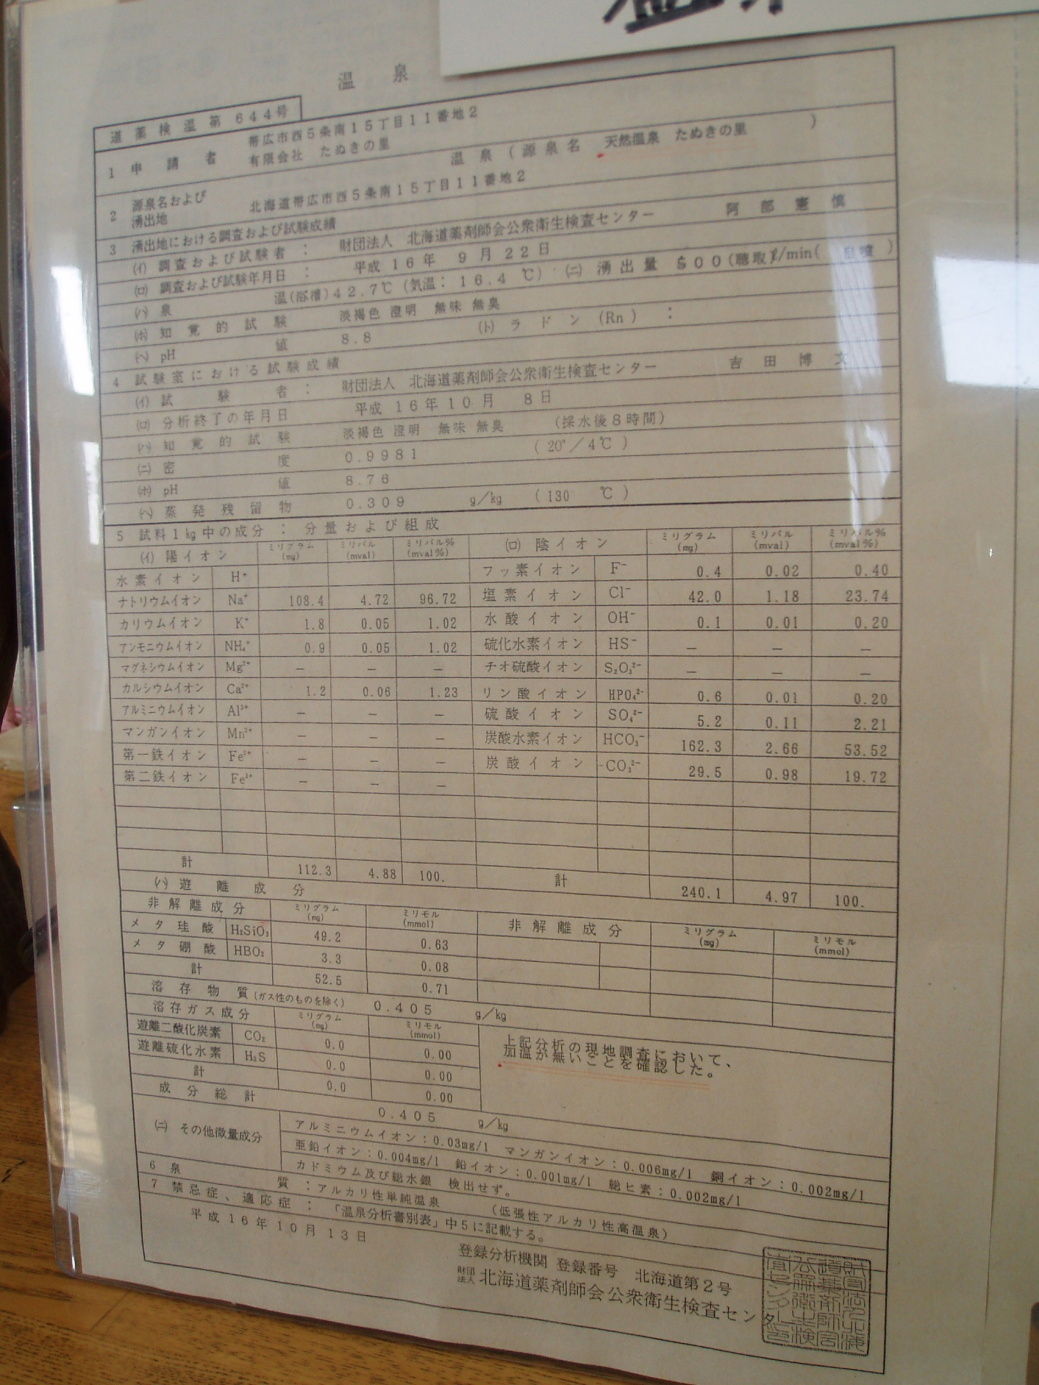 温泉
道薬検温第644号
1 申請者 帯広市西5条南15丁目11番地2
有限会社 たぬきの里
2 源泉名および湧出地 温泉(源泉名 天然温泉 たぬきの里 )
北海道帯広市西5条南15丁目11番地2
3 湧出地における調査および試験成績
(イ) 調査および試験者 : 財団法人 北海道薬剤師会公衆衛生検査センター 阿部憲慎
(ロ) 調査および試験年月日 : 平成16年 9月22日
(ハ) 泉温(浴槽)42.7℃(気温: 16.4 ℃) (ニ) 湧出量 500(聴取)l/min( 自噴 )
(ホ) 知覚的試験 淡褐色 澄明 無味 無臭
(ヘ) pH値 8.8 (ト) ラドン(Rn) :
4 試験室における試験成績
(イ) 試験者 : 財団法人 北海道薬剤師会公衆衛生検査センター 吉田博文
(ロ) 分析終了の年月日 平成16年10月 8日
(ハ) 知覚的試験 淡褐色 澄明 無味 無臭 (採水後8時間)
(ニ) 密度 0.9981 (20°/4℃)
(ホ) pH値 8.76
(ヘ) 蒸発残留物 0.309 g/kg (130 ℃)
5 試料1kg中の成分 : 分量および組成
(イ) 陽イオン ミリグラム(mg) ミリバル(mval) ミリバル%(mval%) (ロ) 陰イオン ミリグラム(mg) ミリバル(mval) ミリバル%(mval%)
水素イオン H⁺ フッ素イオン F⁻ 0.4 0.02 0.40
ナトリウムイオン Na⁺ 108.4 4.72 96.72 塩素イオン Cl⁻ 42.0 1.18 23.74
カリウムイオン K⁺ 1.8 0.05 1.02 水酸イオン OH⁻ 0.1 0.01 0.20
アンモニウムイオン NH₄⁺ 0.9 0.05 1.02 硫化水素イオン HS⁻ — — —
マグネシウムイオン Mg²⁺ — — — チオ硫酸イオン S₂O₃²⁻ — — —
カルシウムイオン Ca²⁺ 1.2 0.06 1.23 リン酸イオン HPO₄²⁻ 0.6 0.01 0.20
アルミニウムイオン Al³⁺ — — — 硫酸イオン SO₄²⁻ 5.2 0.11 2.21
マンガンイオン Mn²⁺ — — — 炭酸水素イオン HCO₃⁻ 162.3 2.66 53.52
第一鉄イオン Fe²⁺ — — — 炭酸イオン CO₃²⁻ 29.5 0.98 19.72
第二鉄イオン Fe³⁺ — — —
計 112.3 4.88 100. 計 240.1 4.97 100.
(ハ) 遊離成分
非解離成分 ミリグラム(mg) ミリモル(mmol) 非解離成分 ミリグラム(mg) ミリモル(mmol)
メタ珪酸 H₂SiO₃ 49.2 0.63
メタ硼酸 HBO₂ 3.3 0.08
計 52.5 0.71
溶存物質(ガス性のものを除く) 0.405 g/kg
溶存ガス成分 ミリグラム(mg) ミリモル(mmol)
遊離二酸化炭素 CO₂ 0.0 0.00
遊離硫化水素 H₂S 0.0 0.00
計 0.0 0.00
上記分析の現地調査において、
加温が無いことを確認した。
成分総計 0.405 g/kg
(ニ) その他微量成分
アルミニウムイオン:0.03mg/l マンガンイオン:0.006mg/l 銅イオン:0.002mg/l
亜鉛イオン:0.004mg/l 鉛イオン:0.001mg/l 総ヒ素:0.002mg/l
カドミウム及び総水銀 検出せず。
6 泉質 : アルカリ性単純温泉 (低張性アルカリ性高温泉)
7 禁忌症、適応症 : 「温泉分析書別表」中5に記載する。
平成16年10月13日
登録分析機関 登録番号 北海道第2号
財団法人 北海道薬剤師会公衆衛生検査センター